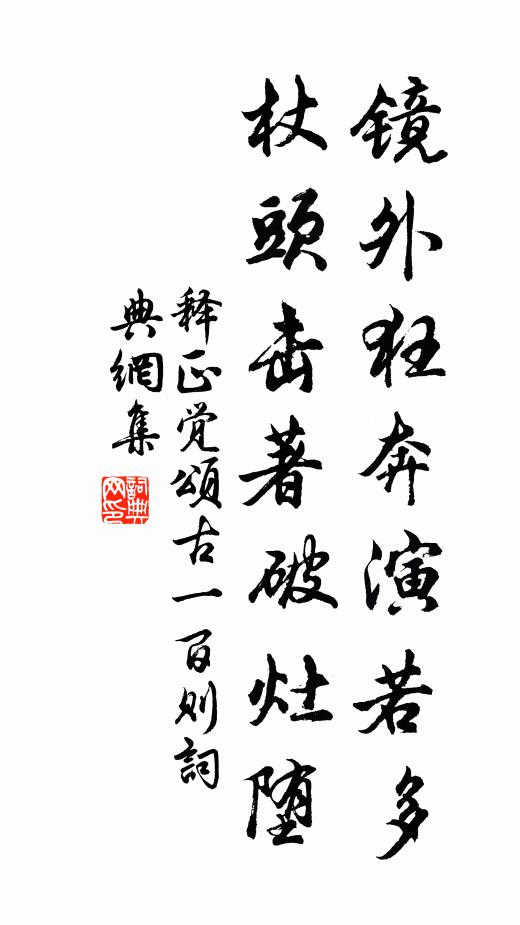 镜外狂奔演若多
杖頭击著破灶堕
释正觉頌古一百则詞
典網集
詞典网印